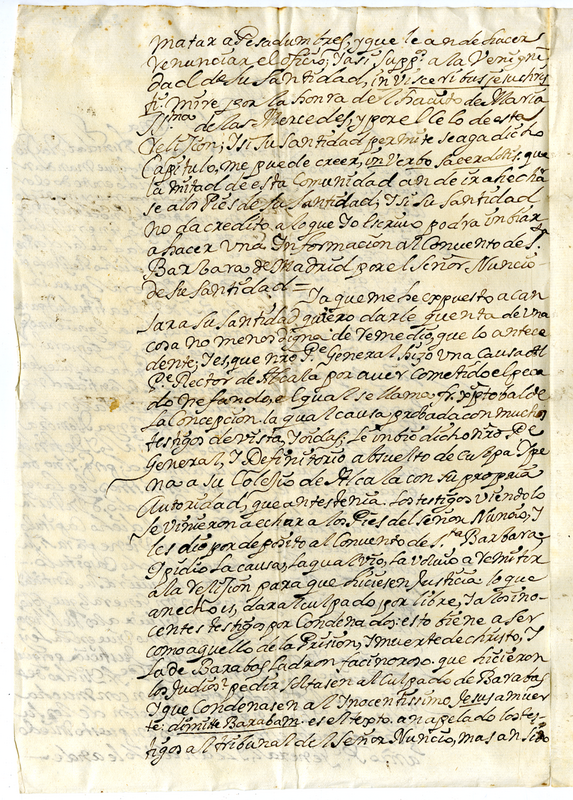 matar a Pesadumbres, y que le an de hacer
renunciar el oficio; I asi supp.co a la Venigni
dad de su Santidad, in Visceribus Jesuchris
ti. Mire por la honra del havito de Maria
SSma de las Mercedes, y por el lelo de esta
relijion; I si su Santidad permite se aga dicho
Capitulo, me puede creer, in Verbo Sacerdotis, que
la mitad de esta Comunidad an de ir a hecha
se a los Pies de su Santidad; I si su Santidad
no da credito a lo que Io escrivo podra inbiar
a hacer Una Informacion al Convento de Sta
Barbara de Madrid por el Señor Nuncio
de su Santidad =
Ia que me he expuesto a can
sar a su Santidad quiero darle quenta de Una
cosa no menor digna de remedio, que lo antece
dente; I es, que nro Pe General hizo Una Causa al
Pe Rector de Alcala por aver cometido el peca
do nefando, el qual se llama fr. Xptobal de
la Concepcion. la qual causa, probada con muchos
testigos de vista, I oidas; le inbio dicho nro Pe
General, I Definitorio absuelto de culpa I pe
na a su Colejio de Alcala con su propria
Autoridad, que antes tenia. Los testigos viendolo
se vinieron a echar a los Pies del señor Nuncio, I
les dio por deposito al Convento de Sta Barbara
I pidio la causa, la qual vio, la volvio a remitir
a la relijion para que hiciesen Justicia. lo que
an echo es, dar al culpado por libre, I a los ino
centes testigos por Condenados: esto biene a ser
como aquello de la Prision, I muerte de christo, I
la de Barabas ladron facinoroso. que hicieron
los Judios? pedir, soltasen al Culpado de Barabas
I que Condenasen al Inocentissimo Jesus a muer
te: dimitte Barabam. es el texto. an apelado los tes
tigos al tribunal de el señor Nuncio, mas an sido